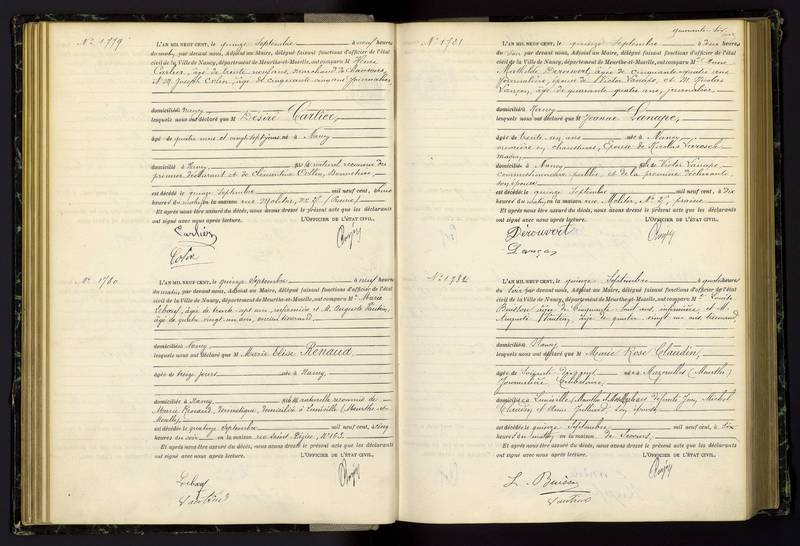 No 1779
L'AN MIL NEUF CENT, le quinze Septembre à neuf heures
du matin, par devant nous, Adjoint au Maire, délégué faisant fonctions d'officier de l'état
civil de la Ville de Nancy, département de Meurthe-et-Moselle, ont comparu M Henri
Cartier, âgé de trente neuf ans, marchand de
et M. Joseph Colin, âgé de cinquante cinq ans journalier,
domiciliés Nancy
lesquels nous ont déclaré que M Désiré Cartier,
âgé de quatre mois et vingt sept jours né à Nancy
domicilié à Nancy, fils naturel reconnu du
premier déclarant et de Clémentine
est décédé le quinze Septembre mil neuf cent, à
heures du matin, en la maison rue Molitor, No 27
Et après nous être assuré du décès, nous avons dressé le présent acte que les déclarants
ont signé avec nous après lecture. L'OFFICIER DE L'ÉTAT CIVIL,
Cartier
No 1780
L'AN MIL NEUF CENT, le quinze Septembre à neuf heures
du matin, par devant nous, Adjoint au Maire, délégué faisant fonctions d'officier de l'état
civil de la Ville de Nancy, département de Meurthe-et-Moselle, ont comparu M Marie
âgée de trente sept ans, infirmière et M. Auguste
âgé de quatre vingt un ans, ancien tisserand
domiciliés Nancy
lesquels nous ont déclaré que M Marie Elise Renaud,
âgée de treize jours née à Nancy
domiciliée à Nancy, fille naturelle reconnue de
Marie Renaud, domestique, domiciliée à Lunéville (Meurthe et
Moselle)
est décédée le quatorze Septembre mil neuf cent, à cinq
heures du soir en la maison rue Saint Dizier, No 162
Et après nous être assuré du décès, nous avons dressé le présent acte que les déclarants
ont signé avec nous après lecture. L'OFFICIER DE L'ÉTAT CIVIL,
quarante-six
No 1781
L'AN MIL NEUF CENT, le quinze Septembre à deux heures
du soir, par devant nous, Adjoint au Maire, délégué faisant fonctions d'officier de l'état
civil de la Ville de Nancy, département de Meurthe-et-Moselle, ont comparu M Anne
Mathilde Dérouvert, âgée de cinquante quatre ans
journalière, épouse de Victor Lanape, et M. Nicolas
Lançay, âgé de quarante quatre ans, journalier
domiciliés Nancy
lesquels nous ont déclaré que M Jeanne Lanape,
âgée de trente un ans née à Nancy
ouvrière en chaussures, Epouse de Nicolas
domiciliée à Nancy, fille de Victor Lanape,
commissionnaire public, et de la première déclarante
son épouse
est décédée le quinze Septembre mil neuf cent, à dix
heures du matin, en la maison rue Molitor, No 27,
Et après nous être assuré du décès, nous avons dressé le présent acte que les déclarants
ont signé avec nous après lecture. L'OFFICIER DE L'ÉTAT CIVIL,
Dérouvert
Lançay
No 1782
L'AN MIL NEUF CENT, le quinze Septembre à quatre heures
du soir, par devant nous, Adjoint au Maire, délégué faisant fonctions d'officier de l'état
civil de la Ville de Nancy, département de Meurthe-et-Moselle, ont comparu M Louise
Buisson âgée de cinquante huit ans, infirmière et M.
Auguste âgé de quatre vingt un ans tisserand
domiciliés Nancy
lesquels nous ont déclaré que M Marie Rose Claudin,
âgée de soixante née à (Meurthe)
Journalière, Célibataire,
domiciliée à Lunéville, (Meurthe et Moselle) fille des défunts Jean Michel
Claudin et Anne son épouse
est décédée le quinze Septembre mil neuf cent, à dix
heures du matin, en la maison de Secours,
Et après nous être assuré du décès, nous avons dressé le présent acte que les déclarants
ont signé avec nous après lecture. L'OFFICIER DE L'ÉTAT CIVIL,
L. Buisson